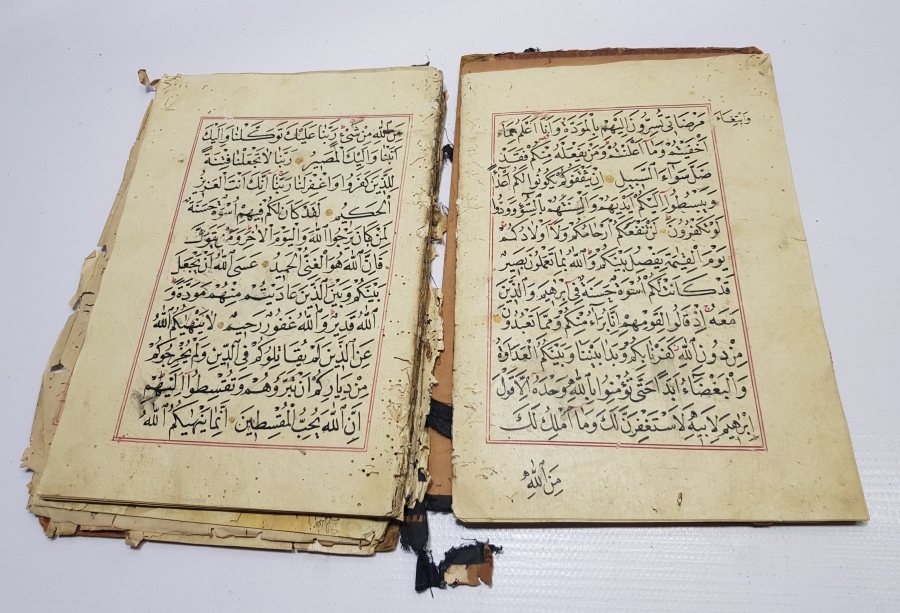 وابتغاء
مرضاتي تسرون إليهم بالمودة وأنا أعلم بما
أخفيتم وما أعلنتم ومن يفعله منكم فقد
ضل سواء السبيل إن يثقفوكم يكونوا لكم أعداء
ويبسطوا إليكم أيديهم وألسنتهم بالسوء وودوا
لو تكفرون لن تنفعكم أرحامكم ولا أولادكم
يوم القيمة يفصل بينكم والله بما تعملون بصير
قد كانت لكم أسوة حسنة في إبرهيم والذين
معه إذ قالوا لقومهم إنا برآؤا منكم ومما تعبدون
من دون الله كفرنا بكم وبدا بيننا وبينكم العداوة
والبغضاء أبدا حتى تؤمنوا بالله وحده إلا قول
إبرهيم لأبيه لأستغفرن لك وما أملك لك
من الله
من الله من شيء ربنا عليك توكلنا وإليك
أنبنا وإليك المصير ربنا لا تجعلنا فتنة
للذين كفروا واغفر لنا ربنا إنك أنت العزيز
الحكيم لقد كان لكم فيهم أسوة حسنة
لمن كان يرجوا الله واليوم الآخر ومن يتول
فإن الله هو الغني الحميد عسى الله أن يجعل
بينكم وبين الذين عاديتم منهم مودة و
الله قدير والله غفور رحيم لا ينهيكم الله
عن الذين لم يقاتلوكم في الدين ولم يخرجوكم
من دياركم أن تبروهم وتقسطوا إليهم
إن الله يحب المقسطين إنما ينهيكم الله